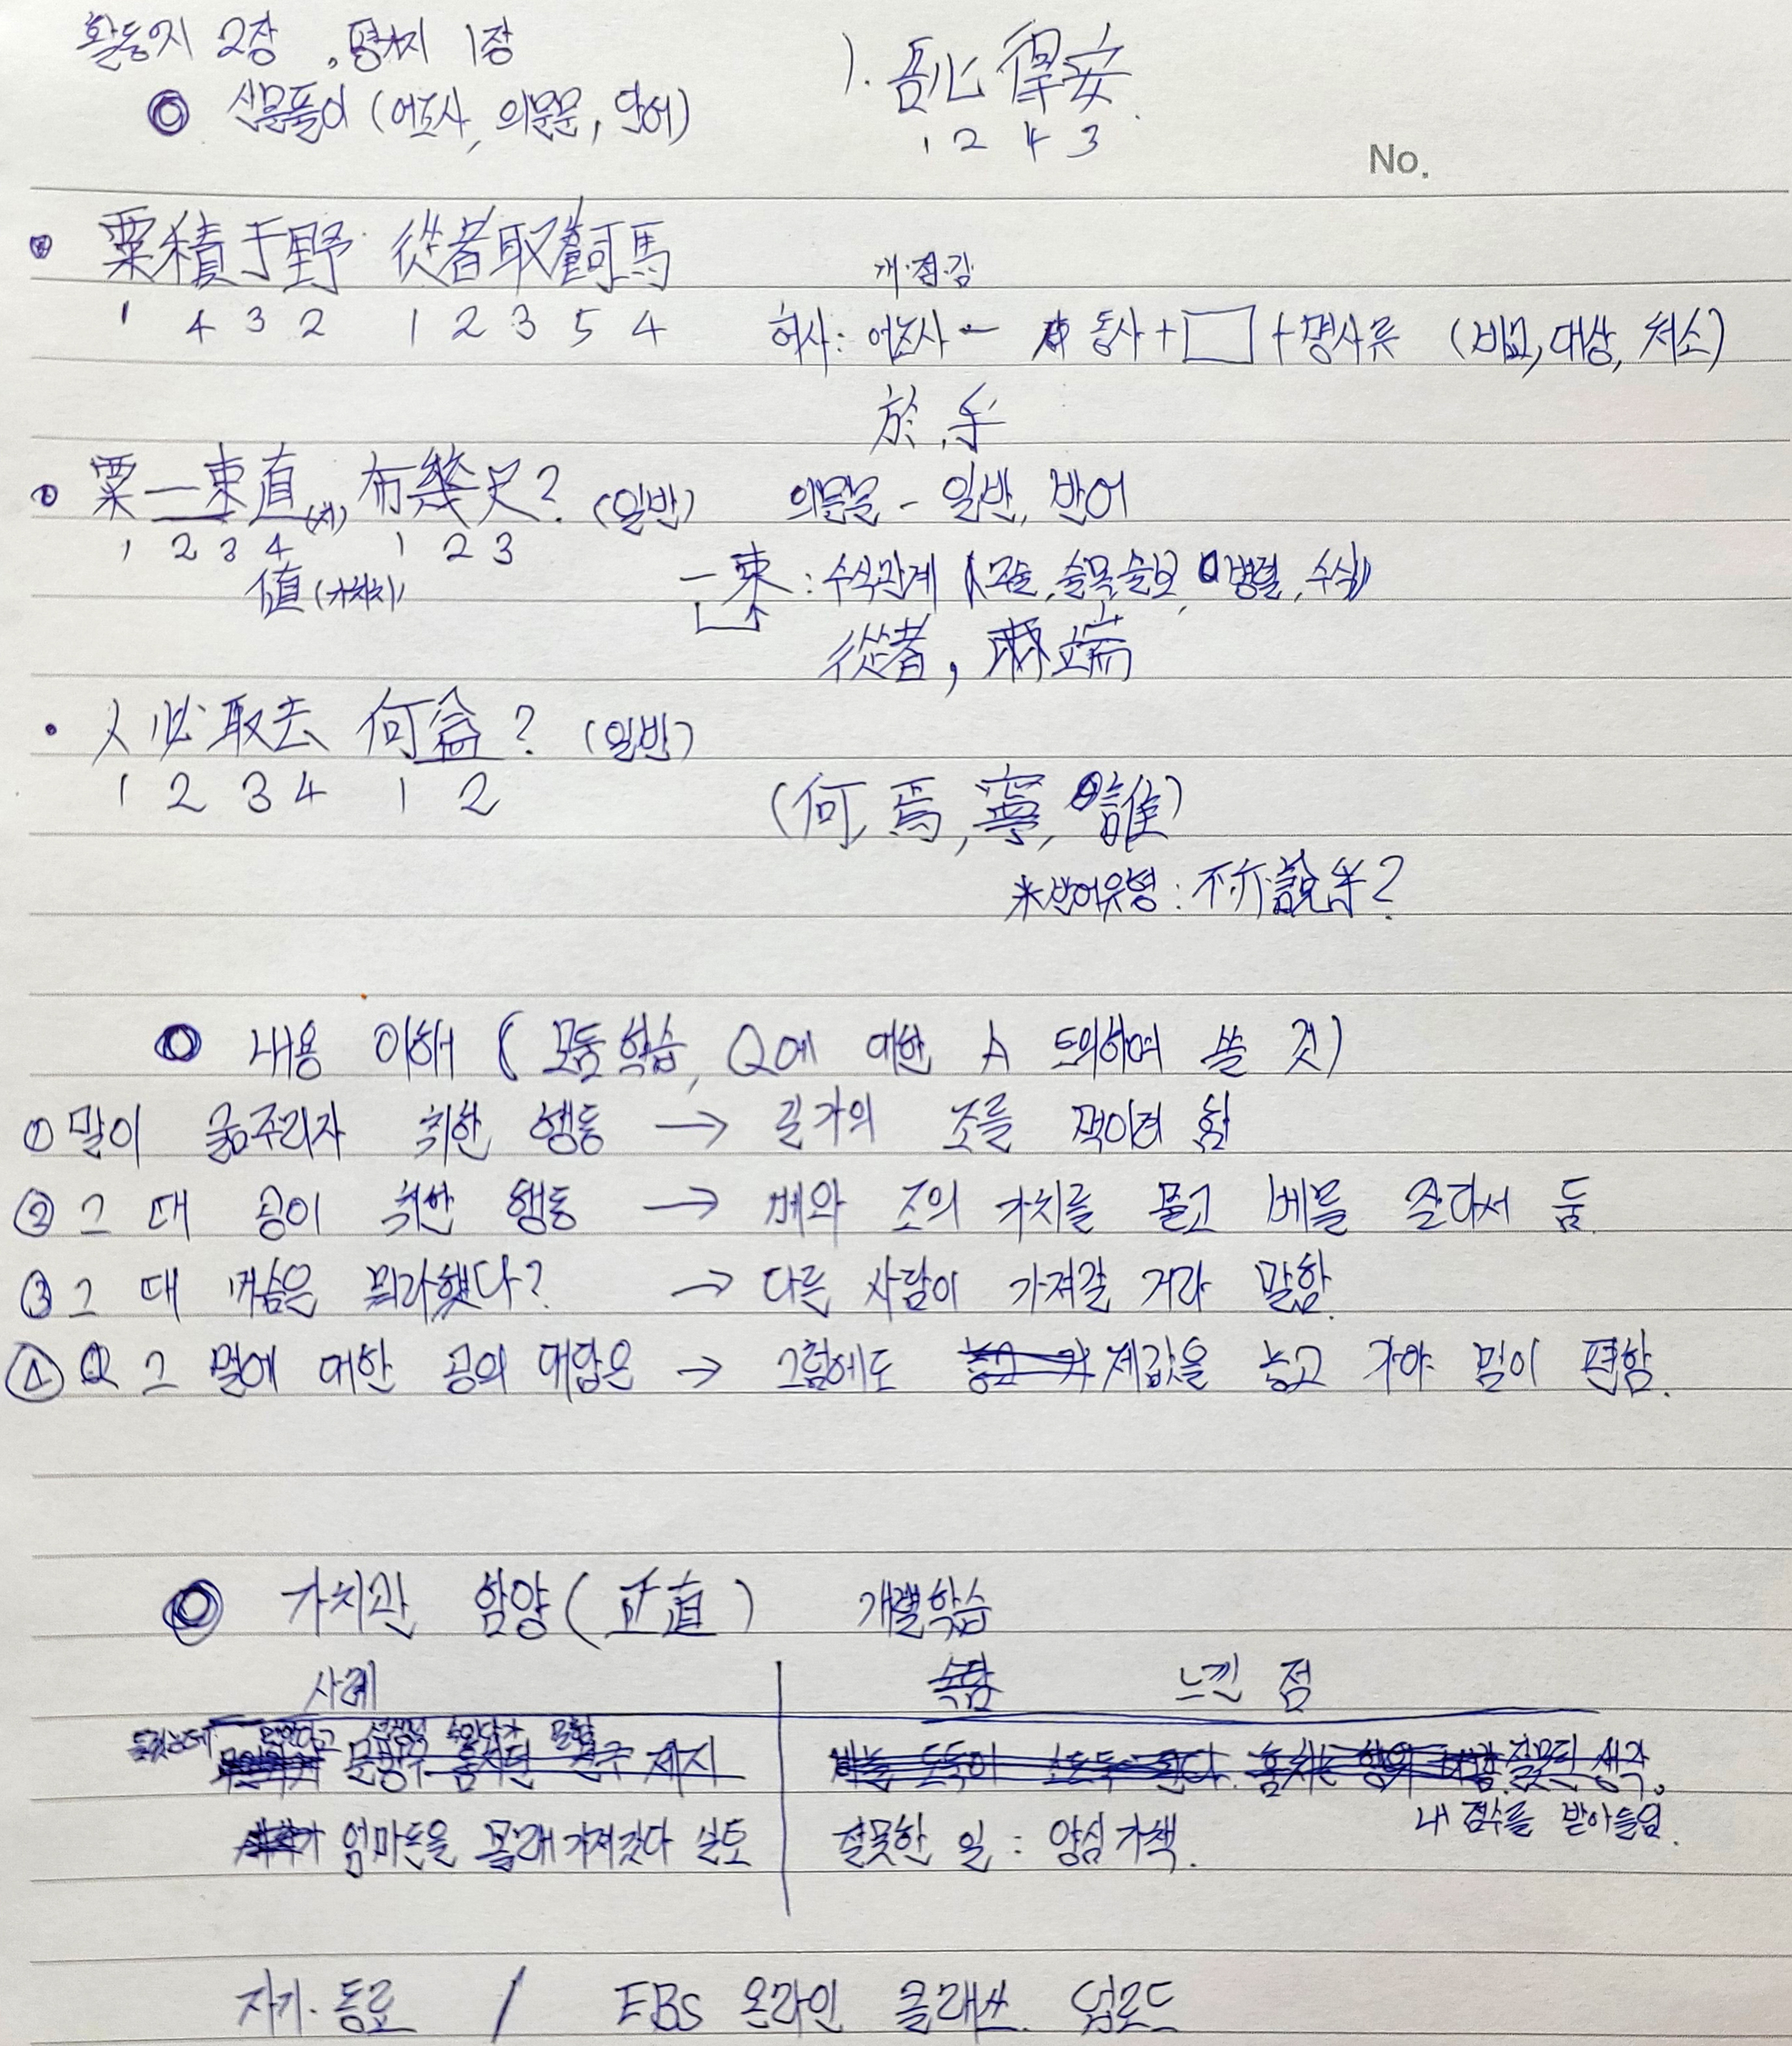 활동지 2장, 평가지 1장
◎ 신문풀이 (어조사, 의문문, 단어)
1. 吾心得安.
1 2 4 3
No.
粟積于野 從者取飼馬
1 4 3 2 1 2 3 5 4
개·접·감
허사: 어조사 - 동사+□+명사류 (비교, 대상, 처소)
於, 乎
粟一束直(치), 布幾尺? (일반)
1 2 3 4 1 2 3
値(가치치)
의문문 - 일반, 반어
一束: 수식관계 (주술, 술목, 술보, 병렬, 수식)
從者, 兩端
人必取去 何益? (일반)
1 2 3 4 1 2
(何, 焉, 寧, 誰)
*반어유형: 不亦說乎?
◎ 내용 이해 (모둠학습, Q에 대한 A 토의하며 쓸 것)
① 말이 굶주리자 취한 행동 → 길가의 조를 먹이려 함
② 그 때 공이 취한 행동 → 베와 조의 가치를 묻고 베를 잘라서 둠
③ 그 때 머슴은 뭐라했다? → 다른 사람이 가져갈 거라 말함.
④ 그 말에 대한 공의 대답은 → 그럼에도 제값을 놓고 가야 맘이 편함.
◎ 가치관 함양(正直) 개별학습
사례 느낀 점
문방구 훔치던 친구 제지
잘못된 생각.
내 점수를 받아들임.
엄마돈을 몰래 가져갔다 실토
잘못한 일: 양심가책.
자기·동료 / EBS 온라인 클래스 업로드